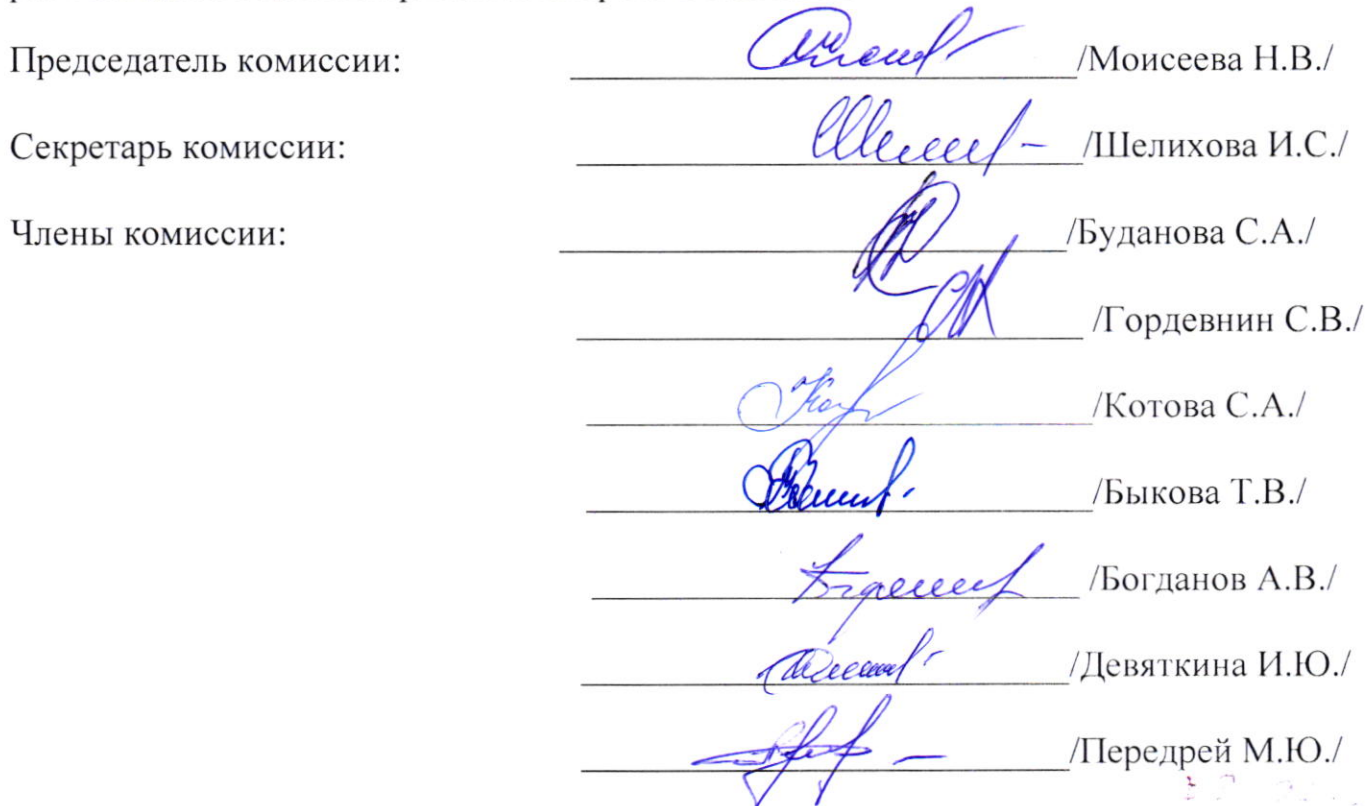 Председатель комиссии: /Моисеева Н.В./
Секретарь комиссии: /Шелихова И.С./
Члены комиссии: /Буданова С.А./
/Гордевнин С.В./
/Котова С.А./
/Быкова Т.В./
/Богданов А.В./
/Девяткина И.Ю./
/Передрей М.Ю./